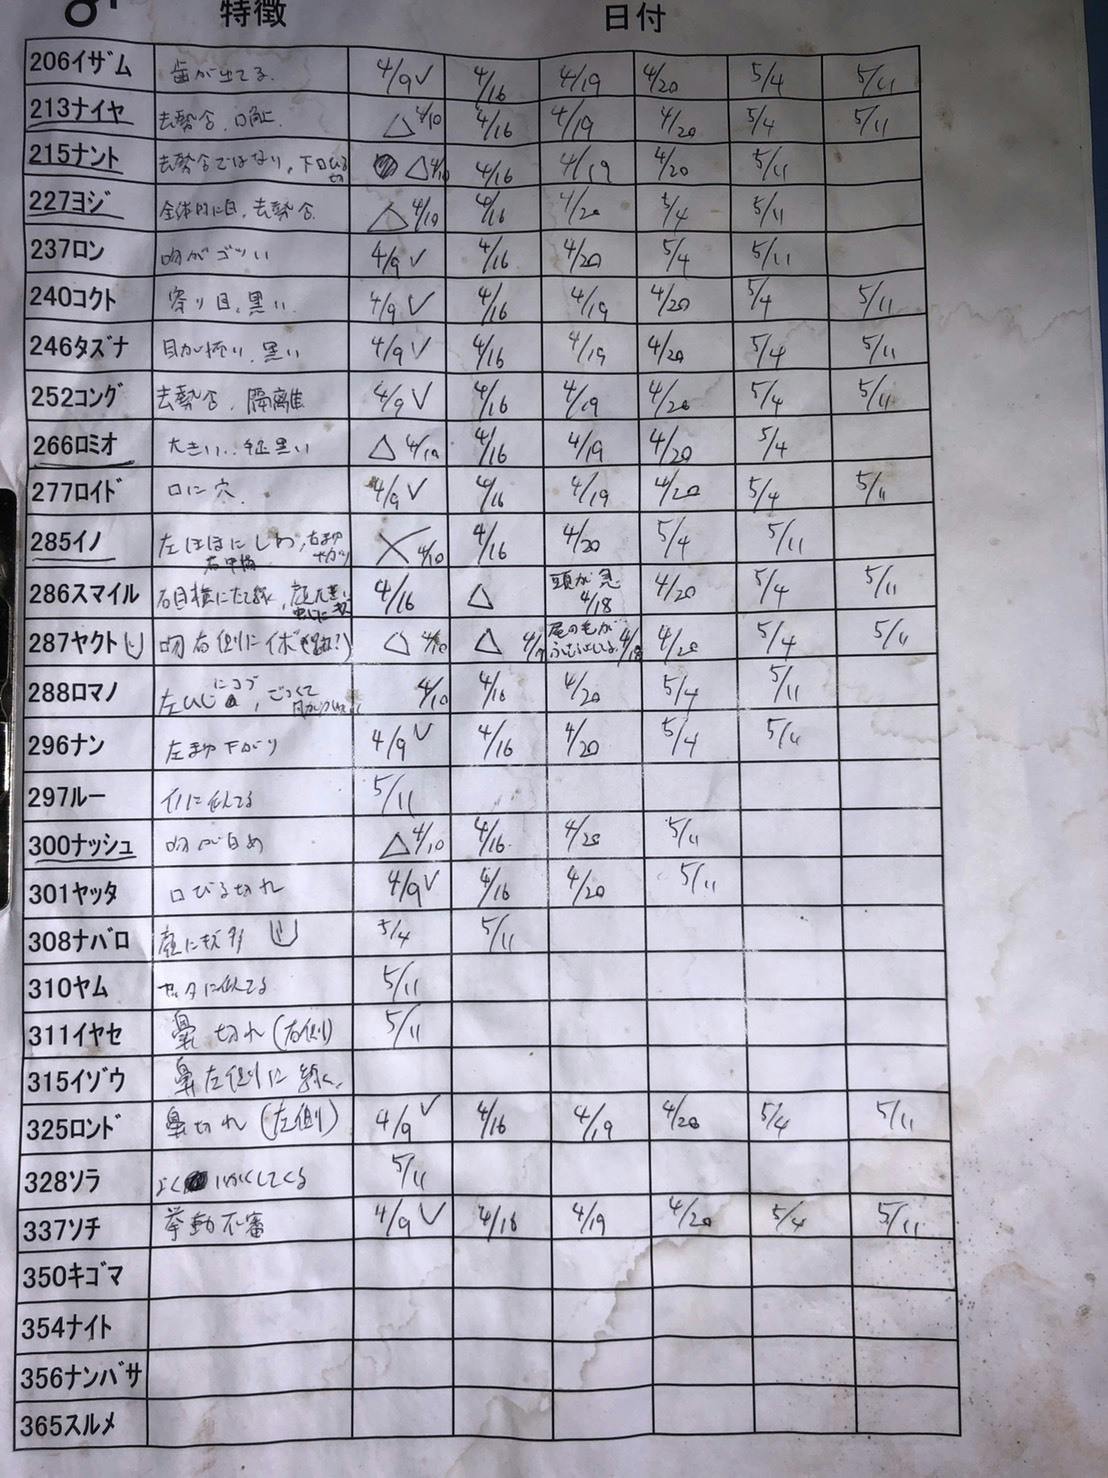 特徴 日付
206イザム 歯が出てる. 4/9✓ 4/16 4/19 4/20 5/4 5/11
213ナイヤ 去勢否, △4/10 4/16 4/19 4/20 5/4 5/11
215ナント 去勢否ではない, 下口びる切 △4/10 4/16 4/19 4/20 5/11
227ヨジ 全体的に白, 去勢否. △4/10 4/16 4/20 5/4 5/11
237ロン 吻がゴツい 4/9✓ 4/16 4/20 5/4 5/11
240コクト 寄り目, 黒い. 4/9✓ 4/16 4/19 4/20 5/4 5/11
246タズナ 目が怖い, 黒い 4/9✓ 4/16 4/19 4/20 5/4 5/11
252コング 去勢否, 隔離 4/9✓ 4/16 4/19 4/20 5/4 5/11
266ロミオ 大きい, 黒い △4/10 4/16 4/19 4/20 5/4
277ロイド 口に穴. 4/9✓ 4/16 4/19 4/20 5/4 5/11
285イノ 左ほほにしわ, ×4/10 4/16 4/20 5/4 5/11
286スマイル 右目横にたて線, 4/16 △ 頭が急 4/18 4/20 5/4 5/11
287ヤクト 吻右側にイボ △4/10 △4/17 尾の毛が 4/18 4/20 5/4 5/11
288ロマノ 左ひじにコブ, ごつくて 4/10 4/16 4/20 5/4 5/11
296ナン 左まゆ下がり 4/9✓ 4/16 4/20 5/4 5/11
297ルー イノに似てる 5/11
300ナッシュ 吻が白め △4/10 4/16 4/20 5/11
301ヤッタ 口びる切れ 4/9✓ 4/16 4/20 5/11
308ナバロ 5/4 5/11
310ヤム ヤッタに似てる 5/11
311イヤセ 鼻切れ(右側) 5/11
315イゾウ 鼻左側に線.
325ロンド 鼻切れ(左側) 4/9✓ 4/16 4/19 4/20 5/4 5/11
328ソラ よくいかくしてくる 5/11
337ソチ 挙動不審 4/9✓ 4/16 4/19 4/20 5/4 5/11
350キゴマ
354ナイト
356ナンバサ
365スルメ